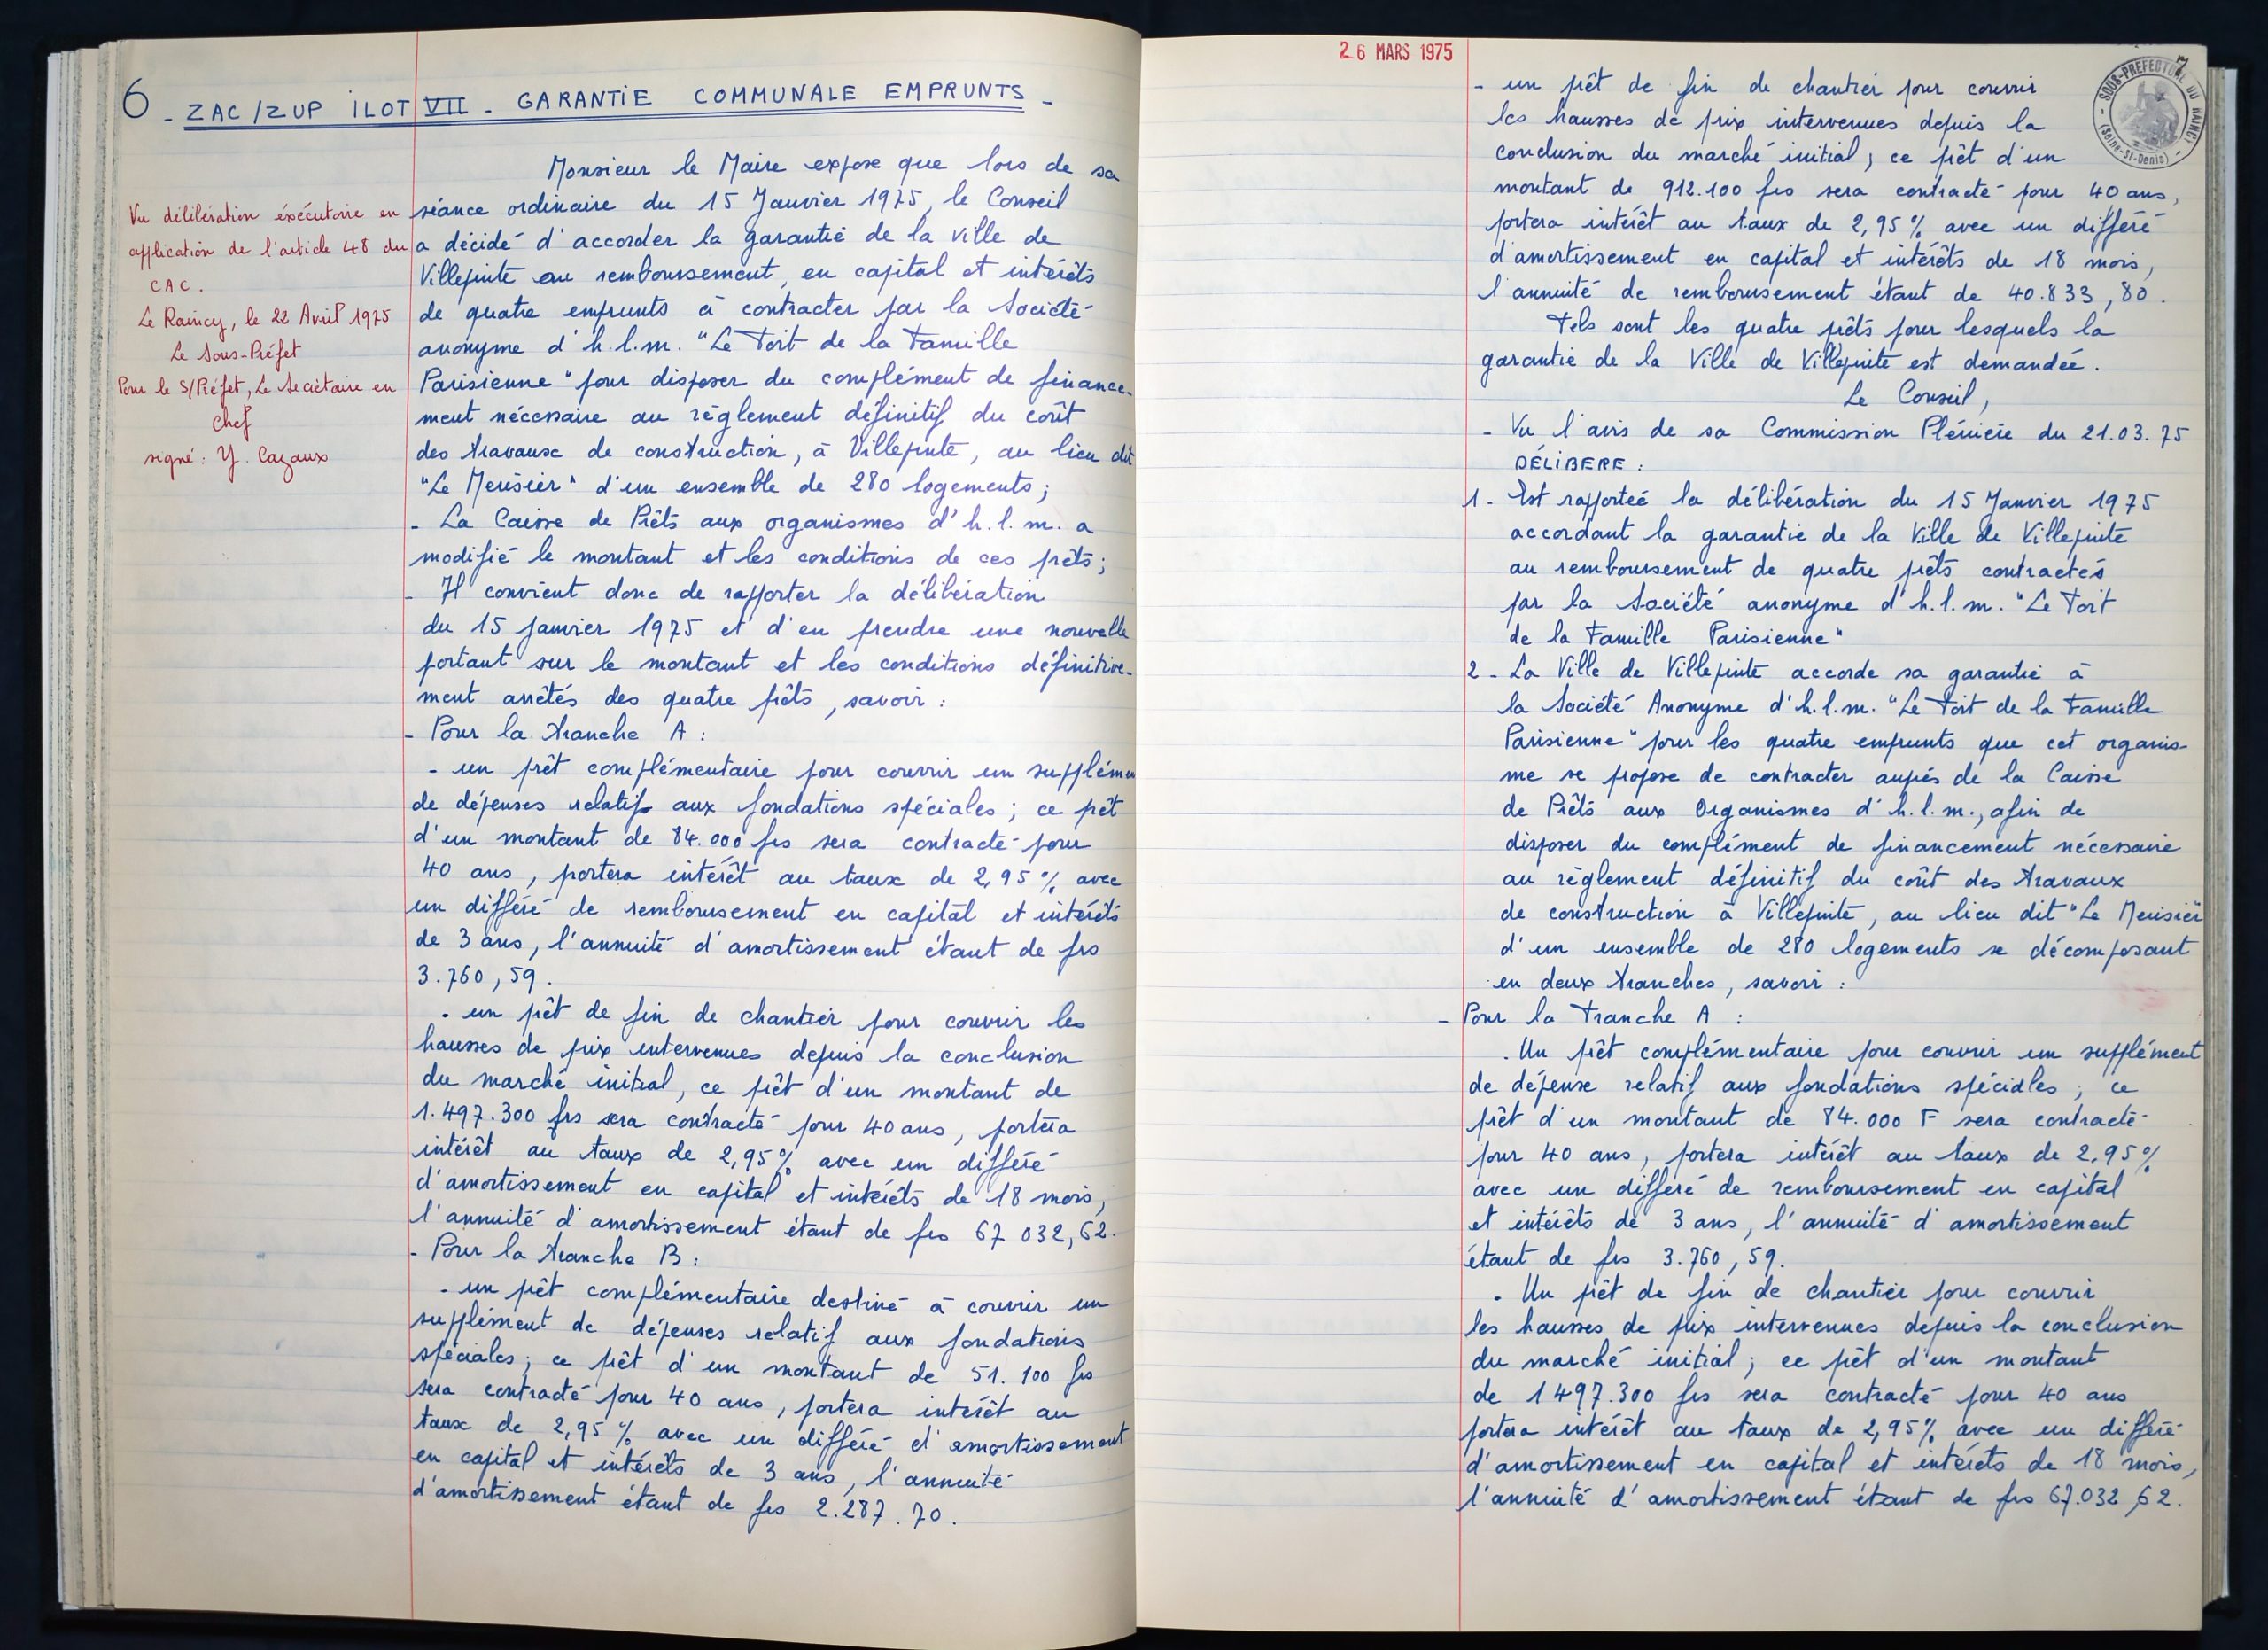 6 - ZAC/ZUP ILOT VII - GARANTIE COMMUNALE EMPRUNTS -
Vu délibération éxécutoire en
application de l'article 48 du
CAC.
Le Raincy, le 22 Avril 1975
Le Sous-Préfet
Pour le S/Préfet, Le Secrétaire en
Chef
signé : Y. Cazaux
Monsieur le Maire expose que lors de sa
séance ordinaire du 15 Janvier 1975, le Conseil
a décidé d'accorder la garantie de la ville de
Villepinte au remboursement, en capital et intérêts
de quatre emprunts à contracter par la Société
anonyme d'h.l.m. "Le Toit de la Famille
Parisienne" pour disposer du complément de finance-
ment nécessaire au règlement définitif du coût
des travaux de construction, à Villepinte, au lieu dit
"Le Merisier" d'un ensemble de 280 logements ;
- La Caisse de Prêts aux organismes d'h.l.m. a
modifié le montant et les conditions de ces prêts ;
- Il convient donc de rapporter la délibération
du 15 janvier 1975 et d'en prendre une nouvelle
portant sur le montant et les conditions définitive-
ment arrêtés des quatre prêts, savoir :
- Pour la tranche A :
- un prêt complémentaire pour couvrir un supplémen
de dépenses relatif aux fondations spéciales ; ce prêt
d'un montant de 84.000 frs sera contracté pour
40 ans, portera intérêt au taux de 2,95 % avec
un différé de remboursement en capital et intérêts
de 3 ans, l'annuité d'amortissement étant de frs
3.760,59.
. un prêt de fin de chantier pour couvrir les
hausses de prix intervenues depuis la conclusion
du marché initial, ce prêt d'un montant de
1.497.300 frs sera contracté pour 40 ans, portera
intérêt au taux de 2,95% avec un différé
d'amortissement en capital et intérêts de 18 mois,
l'annuité d'amortissement étant de frs 67 032,62.
- Pour la tranche B :
- un prêt complémentaire destiné à couvrir un
supplément de dépenses relatif aux fondations
spéciales ; ce prêt d'un montant de 51.100 frs
sera contracté pour 40 ans, portera intérêt au
taux de 2,95 % avec un différé d'amortissement
en capital et intérêts de 3 ans, l'annuité
d'amortissement étant de frs 2.287.70.
26 MARS 1975
7
SOUS-PREFECTURE DU RAINCY
(Seine-St-Denis)
- un prêt de fin de chantier pour couvrir
les hausses de prix intervenues depuis la
conclusion du marché initial ; ce prêt d'un
montant de 912.100 frs sera contracté pour 40 ans,
portera intérêt au taux de 2,95 % avec un différé
d'amortissement en capital et intérêts de 18 mois,
l'annuité de remboursement étant de 40.833,80.
Tels sont les quatre prêts pour lesquels la
garantie de la Ville de Villepinte est demandée.
Le Conseil,
- Vu l'avis de sa Commission Plénière du 21.03.75
DÉLIBERE :
1 - Est rapporteé la délibération du 15 Janvier 1975
accordant la garantie de la Ville de Villepinte
au remboursement de quatre prêts contractés
par la Société anonyme d'h.l.m. "Le Toit
de la Famille Parisienne"
2 - La Ville de Villepinte accorde sa garantie à
la Société Anonyme d'h.l.m. "Le Toit de la Famille
Parisienne" pour les quatre emprunts que cet organis-
me se propose de contracter auprès de la Caisse
de Prêts aux Organismes d'h.l.m., afin de
disposer du complément de financement nécessaire
au règlement définitif du coût des travaux
de construction à Villepinte, au lieu dit "Le Merisier"
d'un ensemble de 280 logements se décomposant
en deux tranches, savoir :
- Pour la Tranche A :
. Un prêt complémentaire pour couvrir un supplément
de dépense relatif aux fondations spéciales ; ce
prêt d'un montant de 84.000 F sera contracté
pour 40 ans, portera intérêt au taux de 2,95%
avec un différé de remboursement en capital
et intérêts de 3 ans, l'annuité d'amortissement
étant de frs 3.760,59.
. Un prêt de fin de chantier pour couvrir
les hausses de prix intervenues depuis la conclusion
du marché initial ; ce prêt d'un montant
de 1497.300 frs sera contracté pour 40 ans
portera intérêt au taux de 2,95% avec un différé
d'amortissement en capital et intérêts de 18 mois,
l'annuité d'amortissement étant de frs 67.032,62.